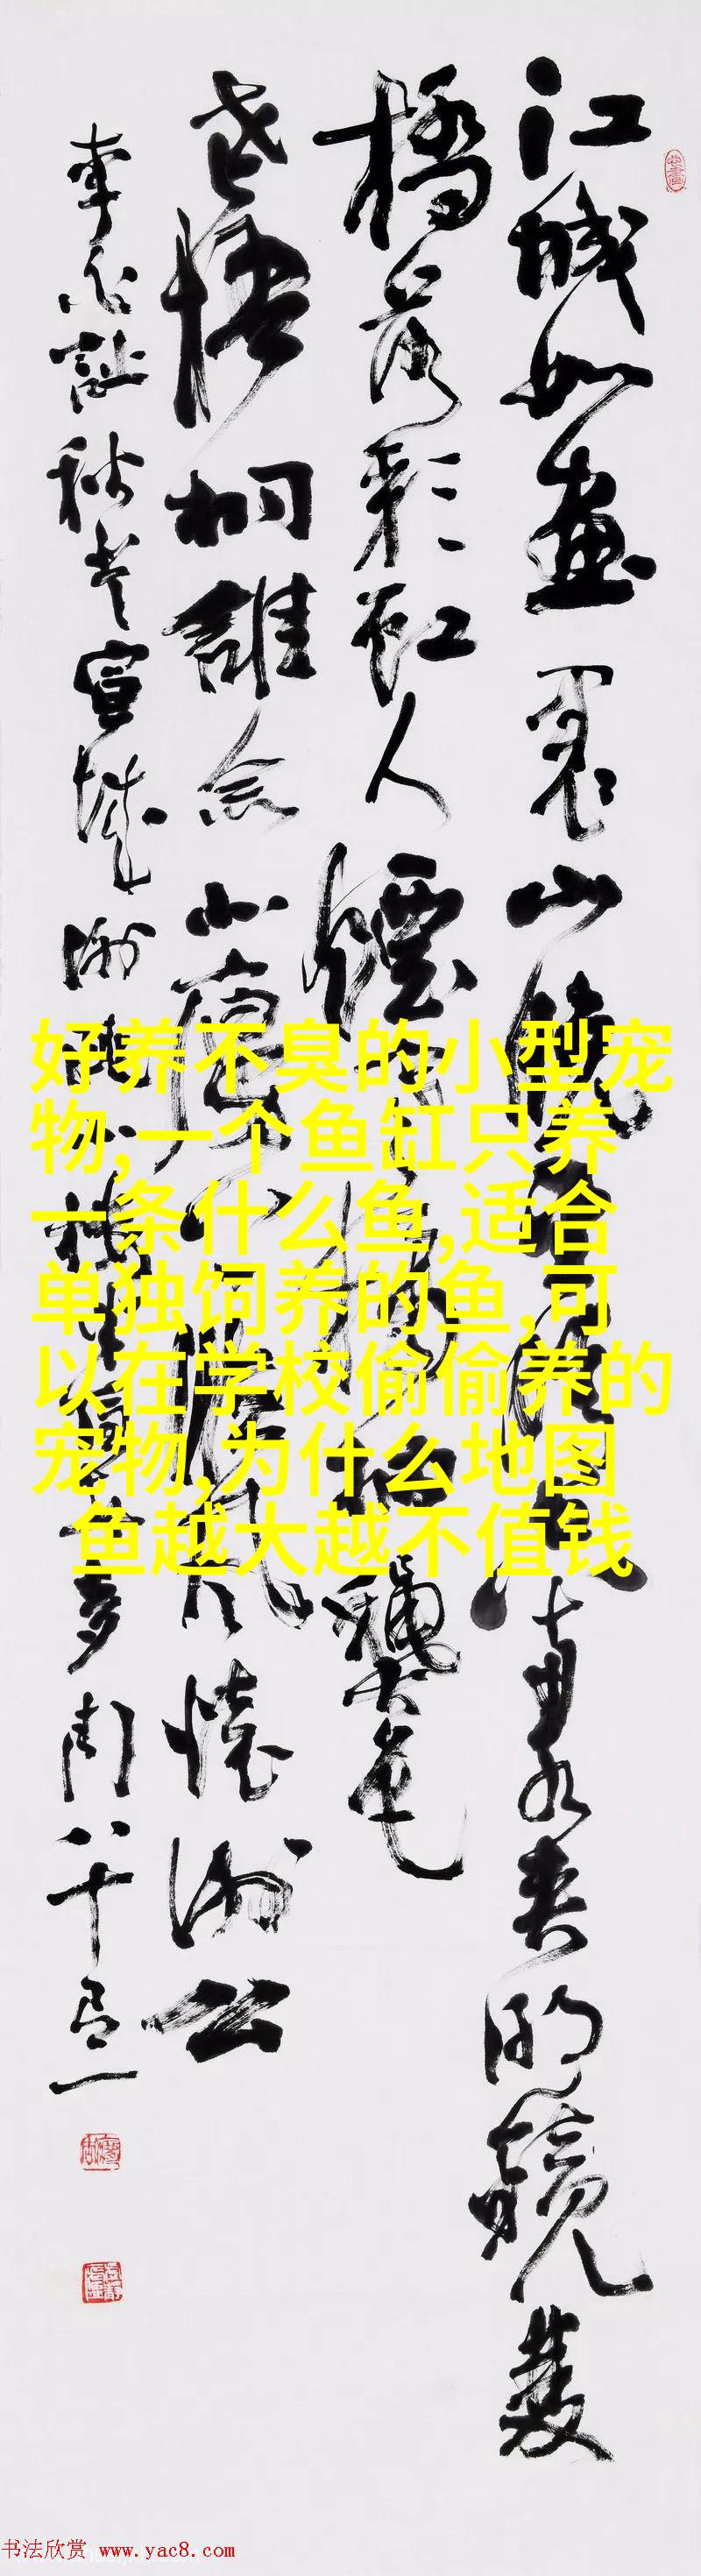 江城如畫裏山曉望晴空兩水夾明鏡雙
橋落彩虹人煙寒橘柚龝色
老梧桐誰念北樓上臨風懷謝公
李白詩秋登宣城謝朓北樓
八十
好养不臭的小型宠
物,一个鱼缸只养
一条什么鱼,适合
单独饲养的鱼,可
以在学校偷偷养的
宠物,为什么地图
鱼越大越不值钱
书法欣赏 www.yac8.com